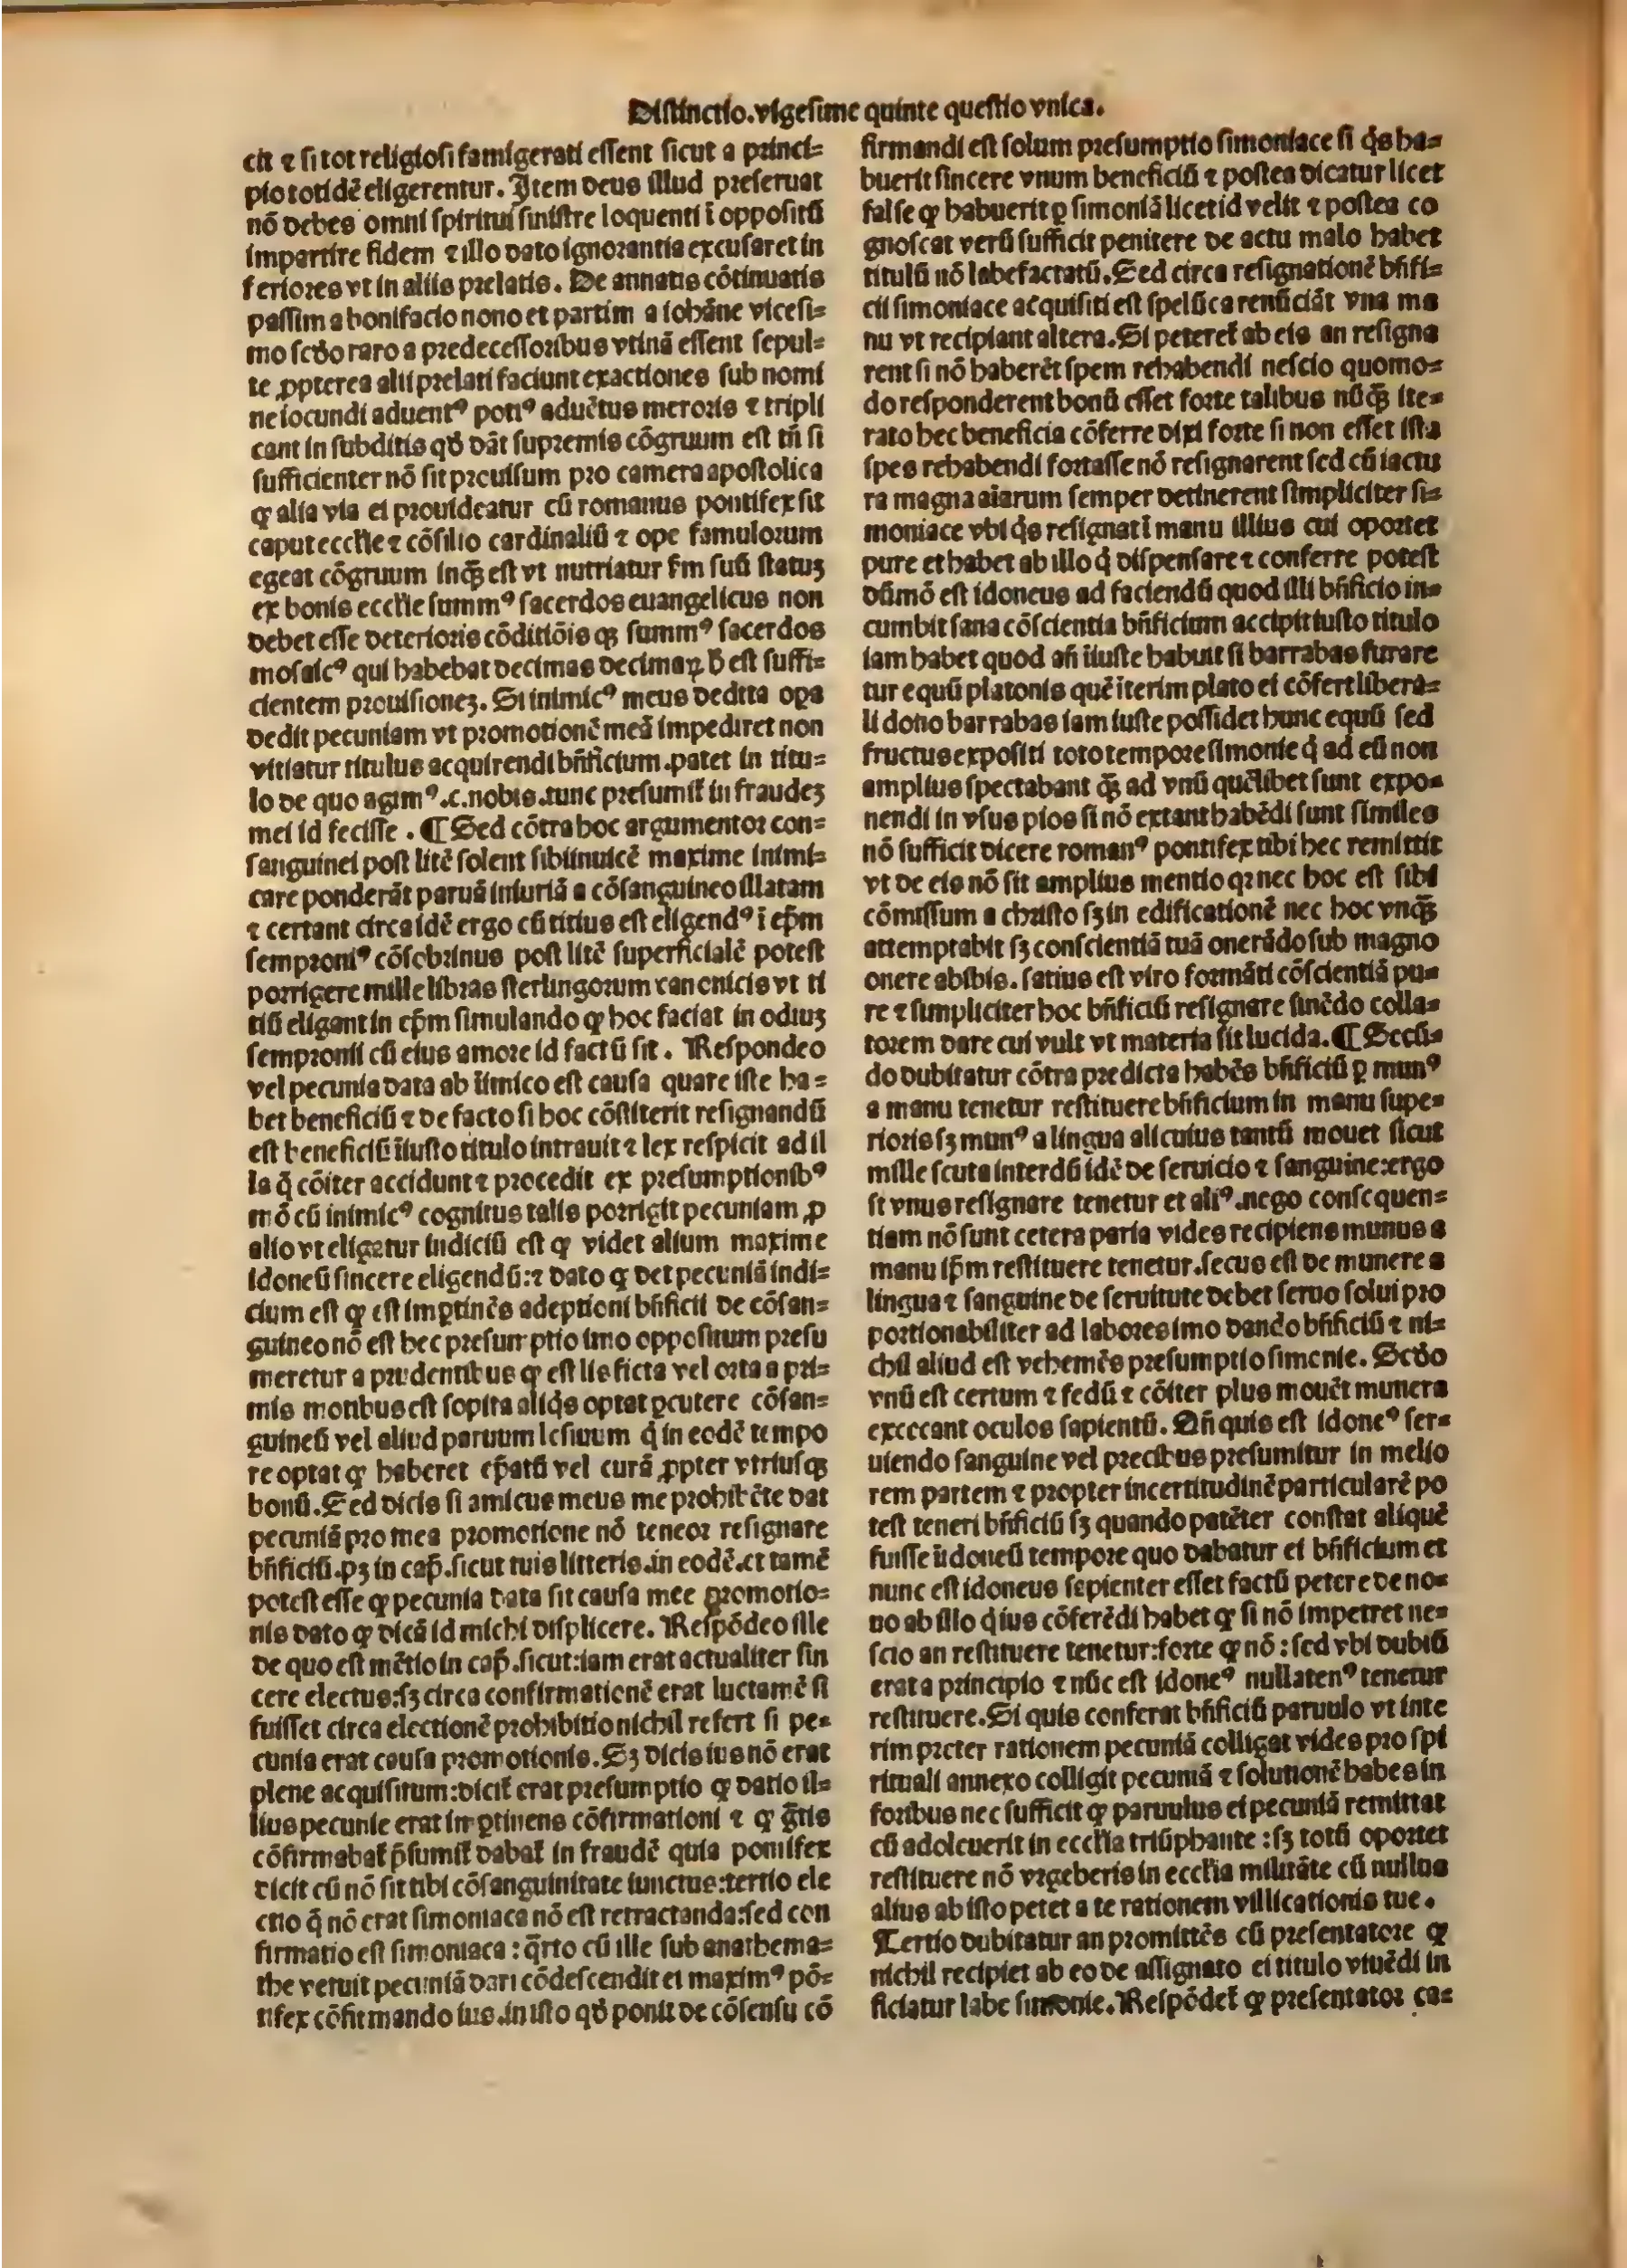 Distinctio.vigesime quinte questio vnica.
cit ⁊ si tot religiosi famigerati essent sicut a princi⸗
pio totidē eligerentur. Item deus illud preseruat
nō debes omni spiritui sinistre loquenti ī oppositū
impartire fidem ⁊ illo dato ignorantia excusaret in
feriores vt in aliis prelatis. De annatis cōtinuatis
passim a bonifacio nono et partim a iohāne vicesi⸗
mo scd̄o raro a predecessoribus vtinā essent sepul⸗
te ꝓpterea alii prelati faciunt exactiones sub nomi
ne iocundi aduentꝰ potiꝰ aduētus meroris ⁊ tripli
cant in subditis qd̄ dāt supremis cōgruum est tn̄ si
sufficienter nō sit prouisum pro camera apostolica
ꝙ alia via ei prouideatur cū romanus pontifex sit
caput ecclīe ⁊ cōsilio cardinaliū ⁊ ope famulorum
egeat cōgruum inqꝫ est vt nutriatur fm suū statuꝫ
ex bonis ecclīe summꝰ sacerdos euangelicus non
debet esse deterioris cōditiōis qꝫ summꝰ sacerdos
mosaicꝰ qui habebat decimas decimaꝝ ħ est suffi⸗
cientem prouisioneꝫ. Si inimicꝰ meus dedita oꝑa
dedit pecuniam vt promotionē meā impediret non
vitiatur titulus acquirendi bn̄ficium.patet in titu⸗
lo de quo agimꝰ.c.nobis.tunc presumit̄ in fraudeꝫ
mei id fecisse. ¶ Sed cōtra hoc argumentor con⸗
sanguinei post litē solent sibiinuicē maxime inimi⸗
care ponderāt paruā iniuriā a cōsanguineo illatam
⁊ certant circa idē ergo cū titius est eligendꝰ ī ep̄m
semproniꝰ cōsobrinus post litē superficialē potest
porrigere mille libras sterlingorum canonicis vt ti
tiū eligant in ep̄m simulando ꝙ hoc faciat in odiuꝫ
sempronii cū eius amore id factū sit. Respondeo
vel pecunia data ab īimico est causa quare iste ha⸗
bet beneficiū ⁊ de facto si hoc cōstiterit resignandū
est beneficiū īiusto titulo intrauit ⁊ lex respicit ad il
la q̄ cōiter accidunt ⁊ procedit ex presumptionibꝰ
mō cū inimicꝰ cognitus talis porrigit pecuniam ꝓ
alio vt eligatur indiciū est ꝙ videt alium maxime
idoneū sincere eligendū:⁊ dato ꝙ det pecuniā indi⸗
cium est ꝙ est imꝑtinēs adeptioni bn̄ficii de cōsan⸗
guineo nō est hec presumptio imo oppositum presu
meretur a prudentibus ꝙ est lis ficta vel orta a pri⸗
mis motibus est sopita aliqͥs optat ꝑcutere cōsan⸗
guineū vel aliud paruum lesiuum q̄ in eodē tempo
re optat ꝙ haberet ep̄atū vel curā ꝓpter vtriusqꝫ
bonū. Sed dicis si amicus meus me prohibēte dat
pecuniā pro mea promotione nō teneor resignare
bn̄ficiū.pꝫ in cap̄.sicut tuis litteris.in eodē.et tamē
potest esse ꝙ pecunia data sit causa mee promotio⸗
nis dato ꝙ dicā id michi displicere. Respōdeo ille
de quo est mētio in cap̄.sicut:iam erat actualiter sin
cere electus:sꝫ circa confirmationē erat luctamē si
fuisset circa electionē prohibitio nichil refert si pe⸗
cunia erat causa promotionis. Sꝫ dicis ius nō erat
plene acquisitum:dicit̄ erat presumptio ꝙ datio il⸗
lius pecunie erat imꝑtinens cōfirmationi ⁊ ꝙ grātis
cōfirmabat̄ p̄sumit̄ dabat̄ in fraudē quia pontifex
dicit cū nō sit tibi cōsanguinitate iunctus:tertio ele
ctio q̄ nō erat simoniaca nō est retractanda:sed con
firmatio est simoniaca: q̄rto cū ille sub anathema⸗
the vetuit pecuniā dari cōdescendit ei maximꝰ pō⸗
tifex cōfirmando ius.in isto qd̄ ponit de cōsensu cō
firmandi est solum presumptio simoniace si qͥs ha⸗
buerit sincere vnum beneficiū ⁊ postea dicatur licet
false ꝙ habuerit ꝑ simoniā licet id velit ⁊ postea co
gnoscat verū sufficit penitere de actu malo habet
titulū nō labefactatū. Sed circa resignationē bn̄fi⸗
cii simoniace acquisiti est spelūca renūciāt vna ma
nu vt recipiant altera. Si peteret̄ ab eis an resigna
rent si nō haberēt spem rehabendi nescio quomo⸗
do responderent bonū esset forte talibus nūqꝫ ite⸗
rato hec beneficia cōferre dixi forte si non esset ista
spes rehabendi fortasse nō resignarent sed cū iactu
ra magna aīarum semper detinerent simpliciter si⸗
moniace vbi qͥs resignat ī manu illius cui oportet
pure et habet ab illo q̄ dispensare ⁊ conferre potest
dūmō est idoneus ad faciendū quod illi bn̄ficio in⸗
cumbit sana cōscientia bn̄ficium accipit iusto titulo
iam habet quod an̄ īiuste habuit si barrabas furare
tur equū platonis quē iterim plato ei cōfert libera⸗
li dono barrabas iam iuste possidet hunc equū sed
fructus expositi toto tempore simonie q̄ ad eū non
amplius spectabant qꝫ ad vnū quēlibet sunt expo⸗
nendi in vsus pios si nō extant habēdi sunt similes
nō sufficit dicere romanꝰ pontifex tibi hec remittit
vt de eis nō sit amplius mentio qꝛ nec hoc est sibi
cōmissum a christo sꝫ in edificationē nec hoc vnqꝫ
attemptabit sꝫ conscientiā tuā onerādo sub magno
onere abibis. satius est viro formāti cōscientiā pu⸗
re ⁊ simpliciter hoc bn̄ficiū resignare sinēdo colla⸗
torem dare cui vult vt materia sit lucida. ¶ Secū⸗
do dubitatur cōtra predicta habēs bn̄ficiū ꝑ munꝰ
a manu tenetur restituere bn̄ficium in manu supe⸗
rioris sꝫ munꝰ a lingua alicuius tantū mouet sicut
mille scuta interdū idē de seruicio ⁊ sanguine:ergo
si vnus resignare tenetur et aliꝰ.nego consequen⸗
tiam nō sunt cetera paria vides recipiens munus a
manu ip̄m restituere tenetur.secus est de munere a
lingua ⁊ sanguine de seruitute debet seruo solui pro
portionabiliter ad labores imo dando bn̄ficiū ⁊ ni⸗
chil aliud est vehemēs presumptio simonie. Scd̄o
vnū est certum ⁊ fedū ⁊ cōiter plus mouēt munera
excecant oculos sapientū. Qn̄ quis est idoneꝰ ser⸗
uiendo sanguine vel precibus presumitur in melio
rem partem ⁊ propter incertitudinē particularē po
test teneri bn̄ficiū sꝫ quando patēter constat aliquē
fuisse īidoneū tempore quo dabatur ei bn̄ficium et
nunc est idoneus sapienter esset factū petere de no⸗
uo ab illo q̄ ius cōferēdi habet ꝙ si nō impetret ne⸗
scio an restituere tenetur:forte ꝙ nō: sed vbi dubiū
erat a principio ⁊ nūc est idoneꝰ nullatenꝰ tenetur
restituere. Si quis conferat bn̄ficiū paruulo vt inte
rim preter rationem pecuniā colligat vides pro spi
rituali annexo colligit pecuniā ⁊ solutionē habes in
foribus nec sufficit ꝙ paruulus ei pecuniā remittat
cū adoleuerit in ecclīa triūphante: sꝫ totū oportet
restituere nō vrgeberis in ecclīa militāte cū nullus
alius ab isto petet a te rationem villicationis tue.
Tertio dubitatur an promittēs cū presentatore ꝙ
nichil recipiet ab eo de assignato ei titulo viuēdi in
ficiatur labe simonie. Respōdet̄ ꝙ presentator ca⸗